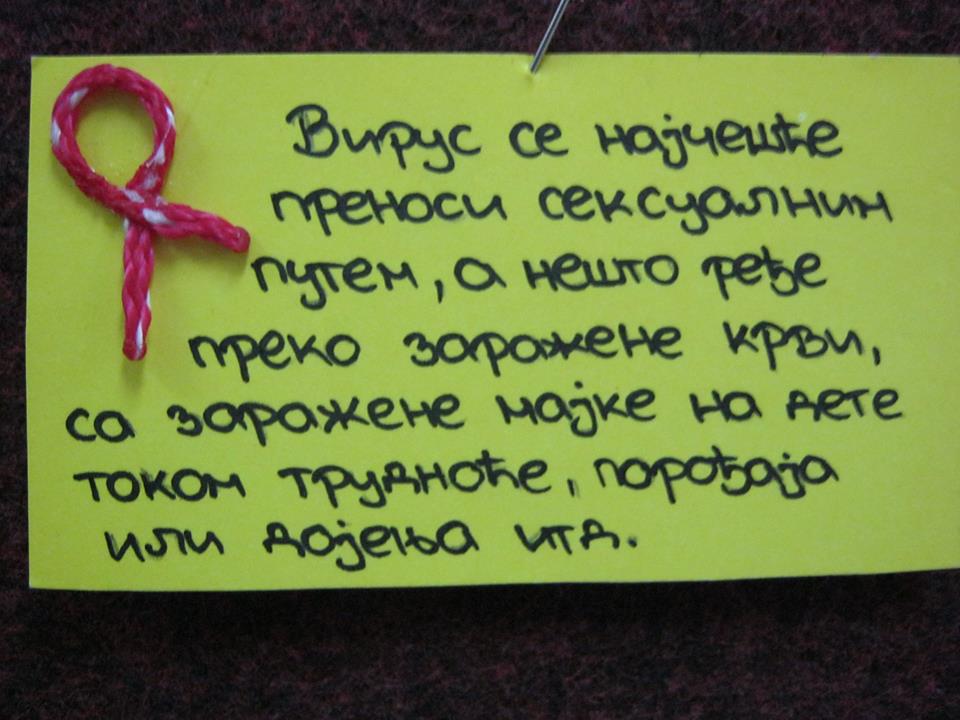 Вирус се најчешће
преноси сексуалним
путем, а нешто ређе
преко заражене крви,
са заражене мајке на дете
током трудноће, порођаја
или дојења итд.